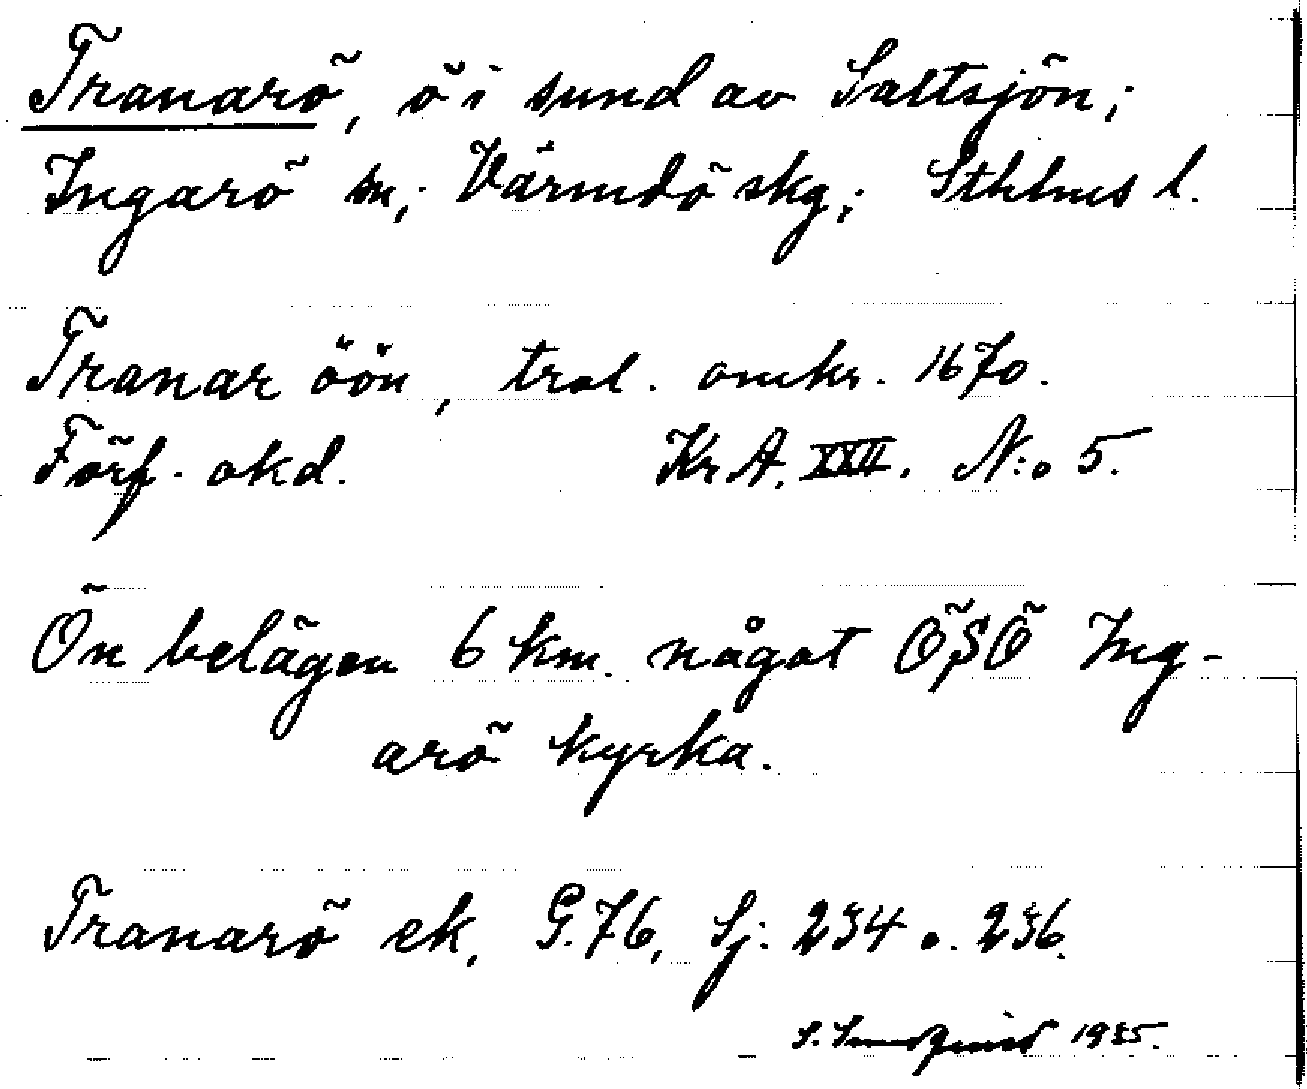 Tranarö, ö i sund av Saltsjön;
Ingarö sn; Värmdö skg; Sthlms l.
Tranar öön, trol. omkr. 1670.
Förf. okd. Kr A. XXII. N:o 5.
Ön belägen 6 km. något ÖSÖ Ing-
arö kyrka.
Tranarö ek, G. 76, Sj: 234 o. 236.
S. 1935.